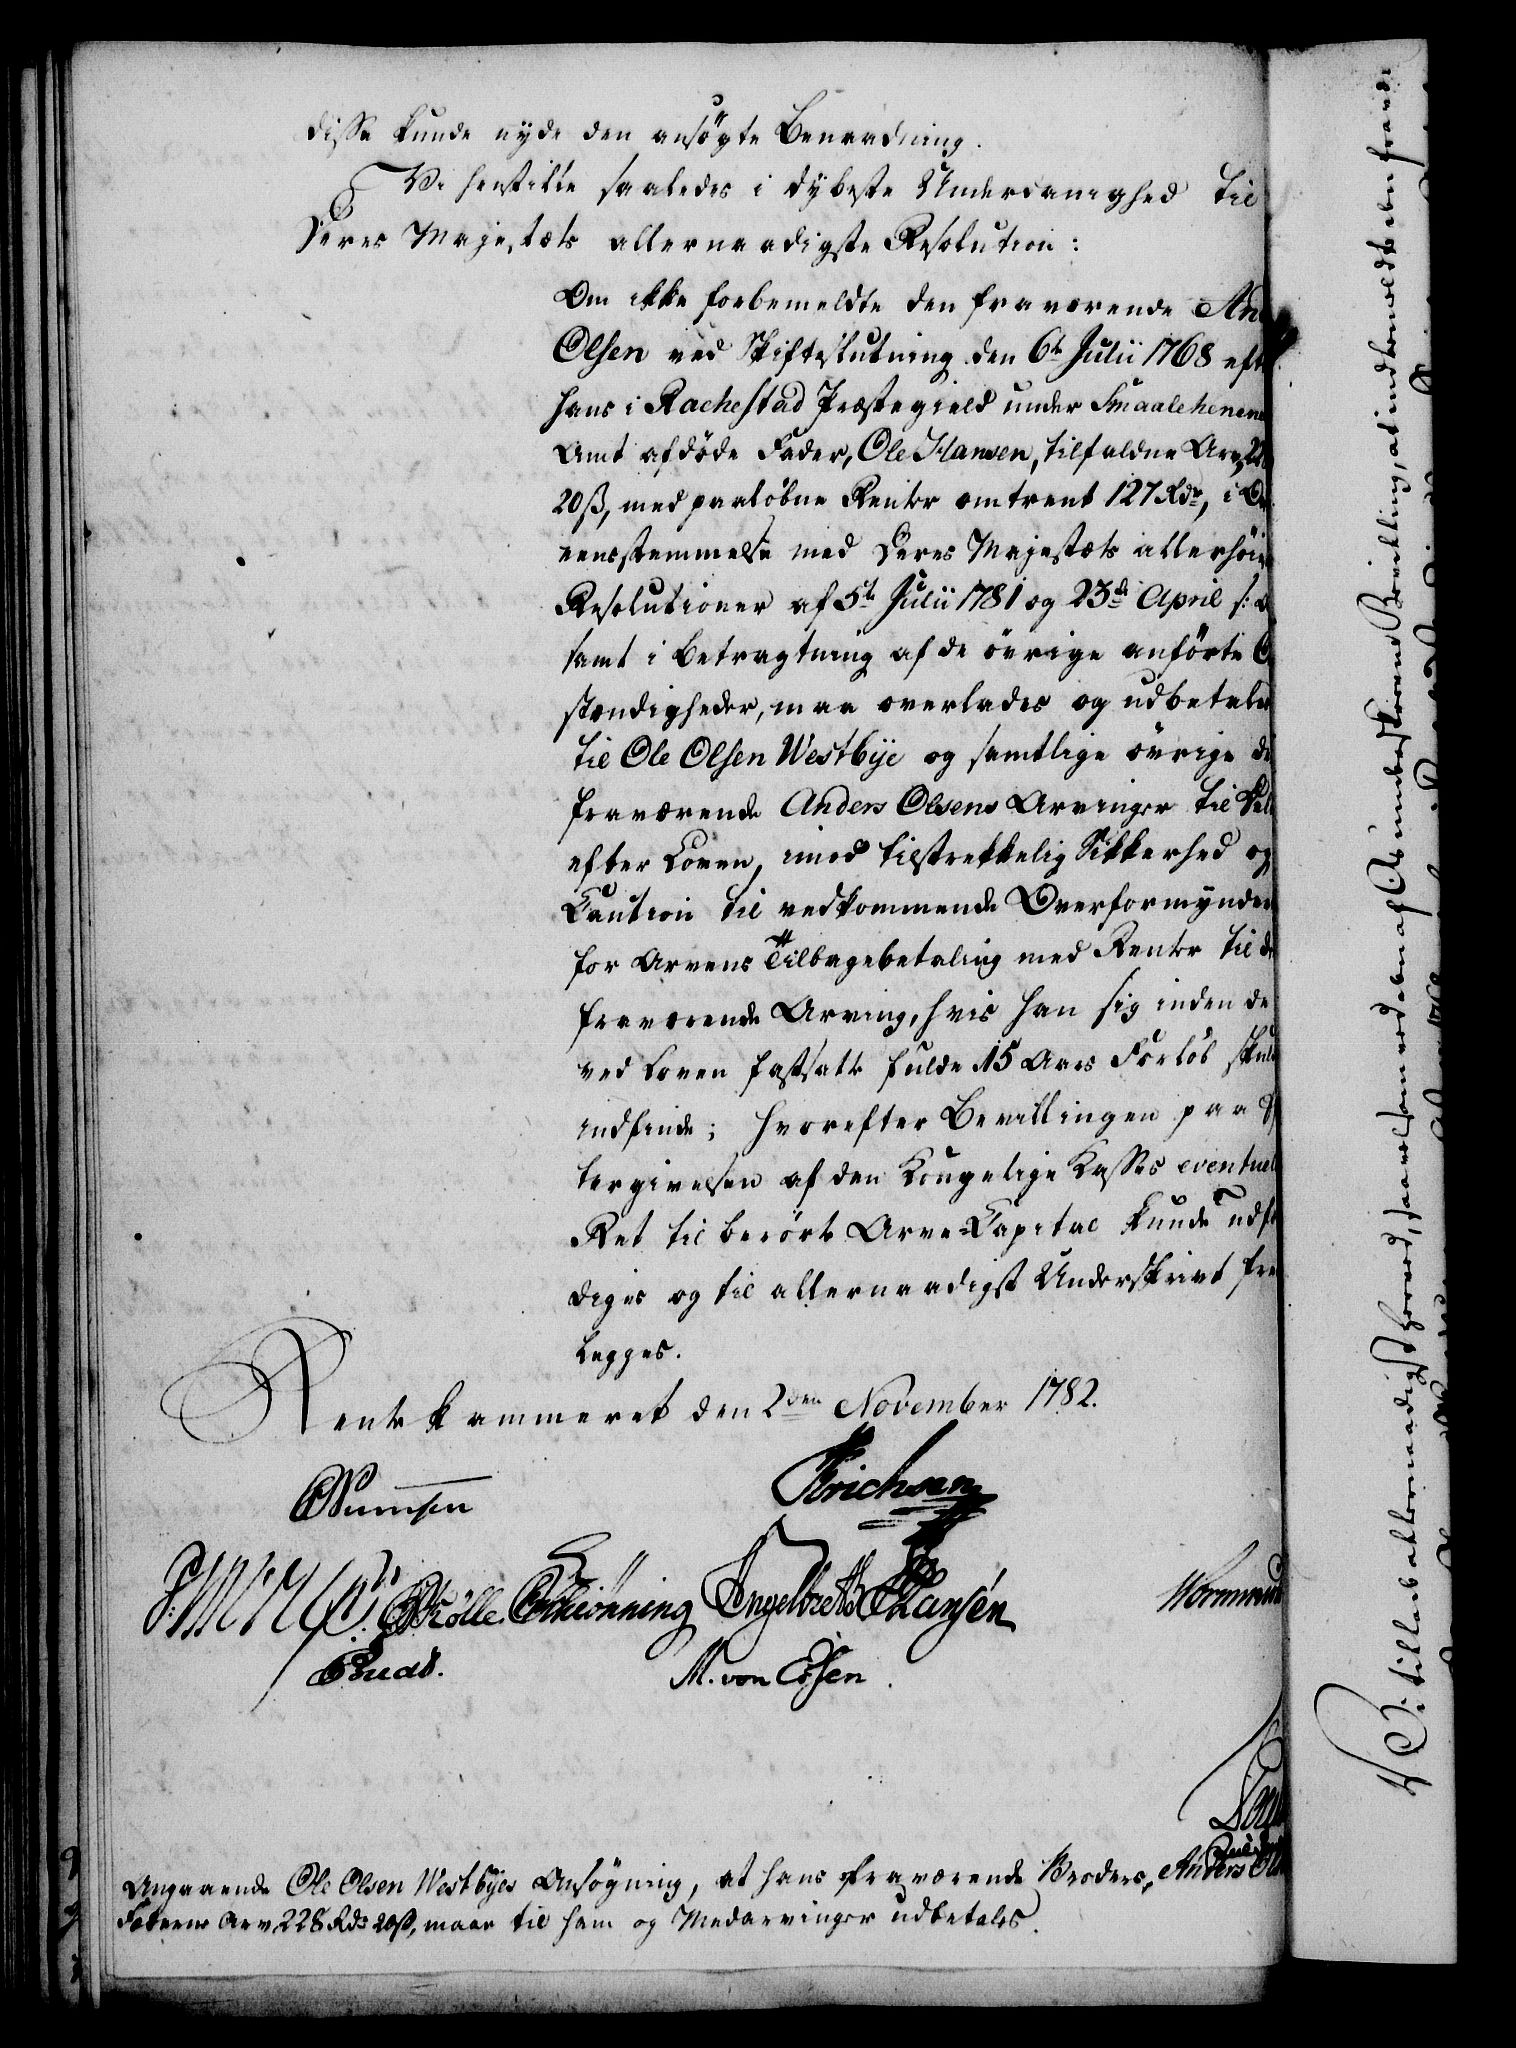 disse kunde nyde den ansøgte Benaadning.
Vi henstille saaledes i dybeste Underdanighed til
Deres Majestæts allernaadigste Resolution:
Om ikke forbemeldte den fraværende And
Olsen ved Skifteslutning den 6te Julii 1768 eft
hans i Rachestad Præstegield under Smaalehnene
Amt afdøde Fader, Ole Hansen, tilfaldne Arv, 22
20 ß, med paaløbne Renter omtrent 127 Rdr, i Ov
eensstemmelse med Deres Majestæts allerhöie
Resolutioner af 5te Julii 1781 og 23de April s: A
samt i Betragtning af de övrige anförte O
stændigheder, maa overlades og udbetales
til Ole Olsen Westbÿe og samtlige övrige de
fraværende Anders Olsens Arvinger til Del
efter Loven, imod tilstrekkelig Sikkerhed og
Caution til vedkommende Overformynder
for Arvens Tilbagebetaling med Renter til de
fraværende Arving, hvis han sig inden de
ved Loven fastsatte fulde 15 Aars Forlöb skul
indfinde; hvorefter Bevillingen paa Ef
tergivelsen af den Kongelige Kasses eventuel
Ret til berörte Arve-Capital kunde udfær
diges og til allernaadigst Underskrivt fre
legges.
Rentekammeret den 2den November 1782.
Erichsen
Trölle Schiönning Engelbreth Hansen Wormsk
M. von Essen.
Angaaende Ole Olsen Westbÿes Ansøgning, at hans fraværende Broders, Anders Ols
Fæderne Arv 228 Rdr 20 ß, maae til ham og Medarvinger udbetales.